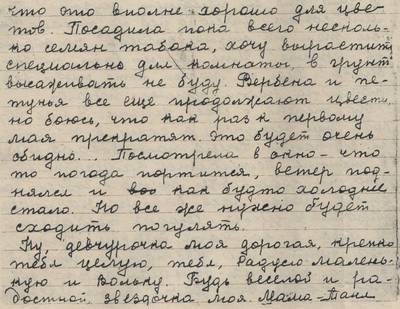 что это вполне хорошо для цве-
тов. Посадила пока всего несколь-
ко семян табака, хочу вырастить
специально для комнаты, в грунт
высаживать не буду. Вербена и пе-
тунья все еще продолжают цвести,
но боюсь, что как раз к первому
мая прекратят. Это будет очень
обидно... Посмотрела в окно - что
то погода портится, ветер под-
нялся и как будто холоднее
стало. Но все же нужно будет
сходить погулять.
Ну, девчурочка моя дорогая, крепко
тебя целую, тебя, Радусю малень-
кую и Вольку. Будь веселой и ра-
достной, звездочка моя. Мама-Таня